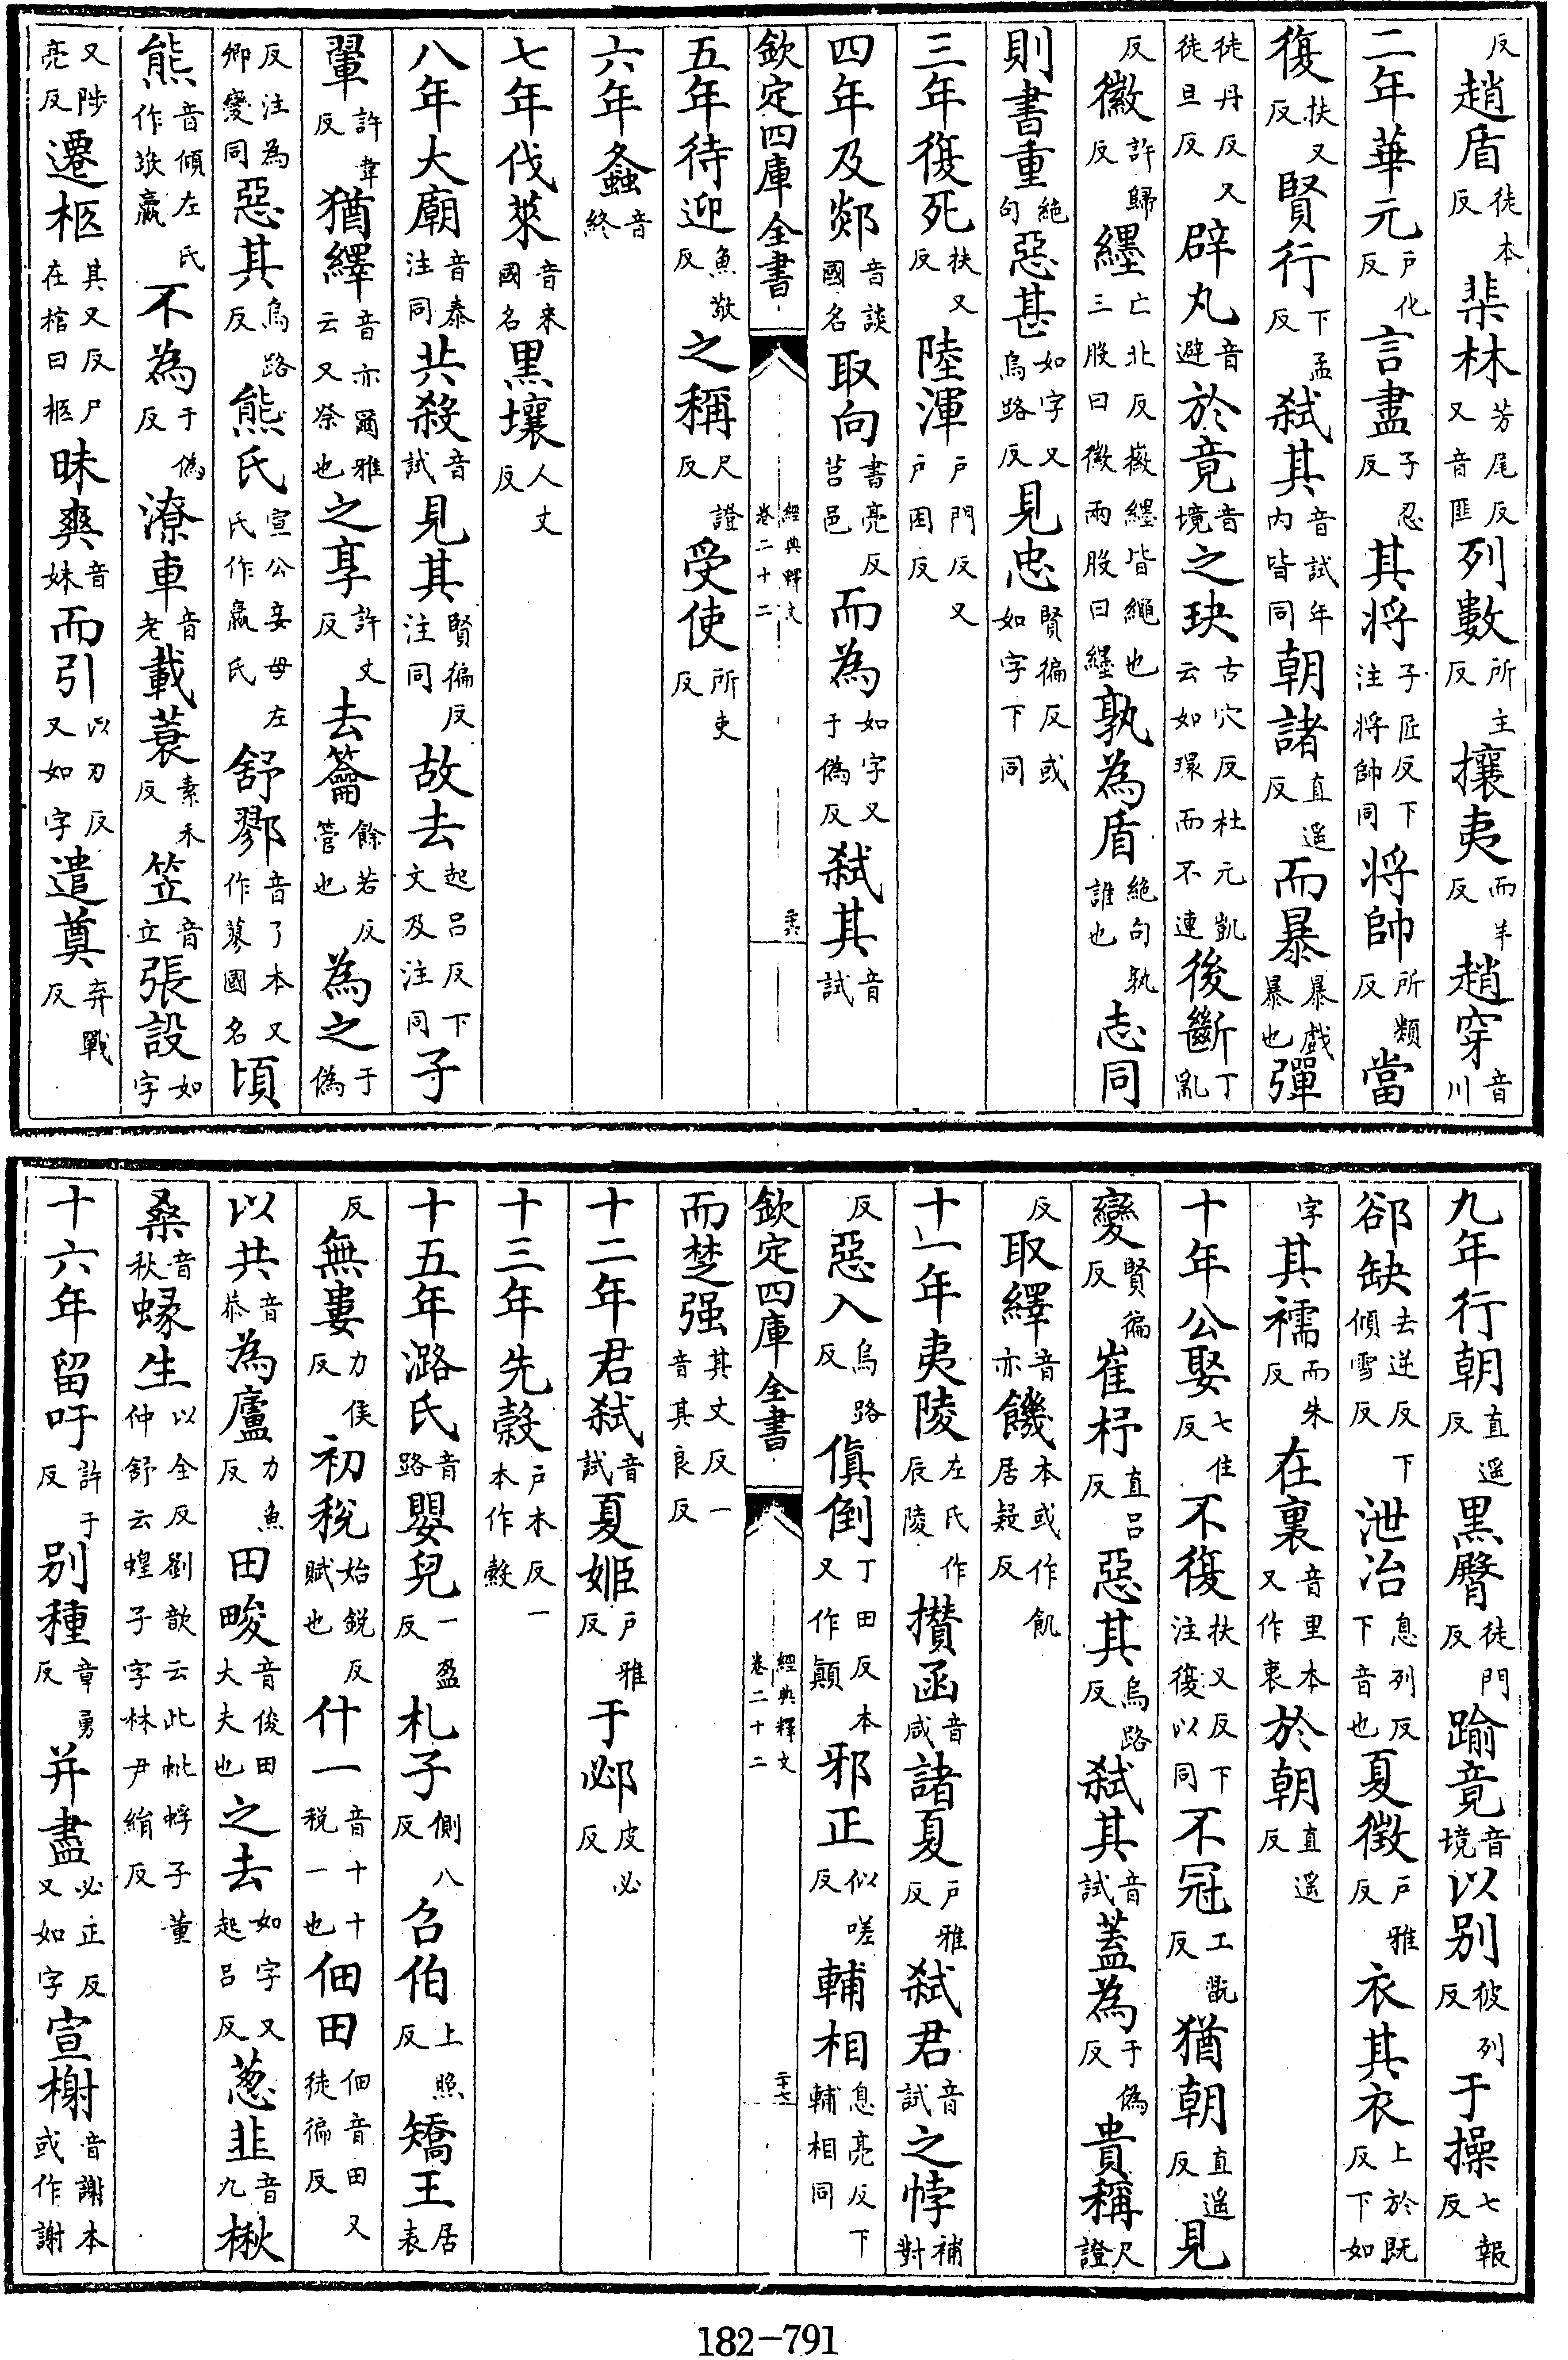 反趙盾徒本反棐林芳尾反又音匪列數所主反攘夷而羊反趙穿音川
二年華元戶化反言盡子忍反其將子匠反下注將帥同將帥所類反當
復扶又反賢行下孟反弑其音試年内皆同朝諸直遥反而暴暴戲暴也彈
徒丹反又徒旦反辟丸音避於竟音境之玦古穴反杜元凱云如環而不連後斷丁亂
反徽許歸反纆亡北反徽纆皆繩也三股曰徽兩股曰纆孰為盾絶句孰誰也志同
則書重絶句惡甚如字又烏路反見忠賢徧反或如字下同
三年復死扶又反陸渾戶門反又戶困反
四年及郯音談國名取向書亮反莒邑而為如字又于偽反弑其音試
欽定四庫全書 經典釋文卷二十二 二十六
五年待迎魚敬反之稱尺證反受使所吏反
六年螽音終
七年伐萊音來國名黑壤人丈反
八年大廟音泰注同共殺音試見其賢徧反注同故去起呂反下文及注同子
翬許韋反猶繹音亦爾雅云又祭也之享許丈反去籥餘若反管也為之于偽
反注為卿變同惡其烏路反熊氏宣公妾母左氏作嬴氏舒鄝音了本又作蓼國名頃
熊音傾左氏作敬嬴不為于偽反潦車音老載蓑素禾反笠音立張設如字
又陟亮反遷柩其又反尸在棺曰柩昧爽音妹而引以刃反又如字遣奠弃戰反
九年行朝直遥反黑臀徒門反踰竟音境以别彼列反于操七報反
郤缺去逆反下傾雪反泄冶息列反下音也夏徵戶雅反衣其衣上於既反下如
字其襦而朱反在裏音里本又作衷於朝直遥反
十年公娶七住反不復扶又反下注復以同不冠工翫反猶朝直遥反見
變賢徧反崔杼直呂反惡其烏路反弑其音試蓋為于偽反貴稱尺證
反取繹音亦饑本或作飢居疑反
十一年夷陵左氏作辰陵攢函音咸諸夏戶雅反弑君音試之悖補對
反惡入烏路反傎倒丁田反本又作顛邪正似嗟反輔相息亮反下輔相同
欽定四庫全書 經典釋文卷二十二 二十七
而楚强其丈反一音其良反
十二年君弑音試夏姬戶雅反于邲皮必反
十三年先縠戶木反一本作穀
十五年潞氏音路嬰兒一盈反札子側八反召伯上照反矯王居表
反無婁力侯反初税始鋭反賦也什一音十十税一也佃田佃音田又徒徧反
以共音恭為廬力魚反田畯音俊田大夫也之去如字又起呂反葱韭音九楸
桑音秋蝝生以全反劉歆云此蚍蜉子董仲舒云蝗子字林尹絹反
十六年留吁許于反别種章勇反并盡必正反又如字宣榭音謝本或作謝
182-791